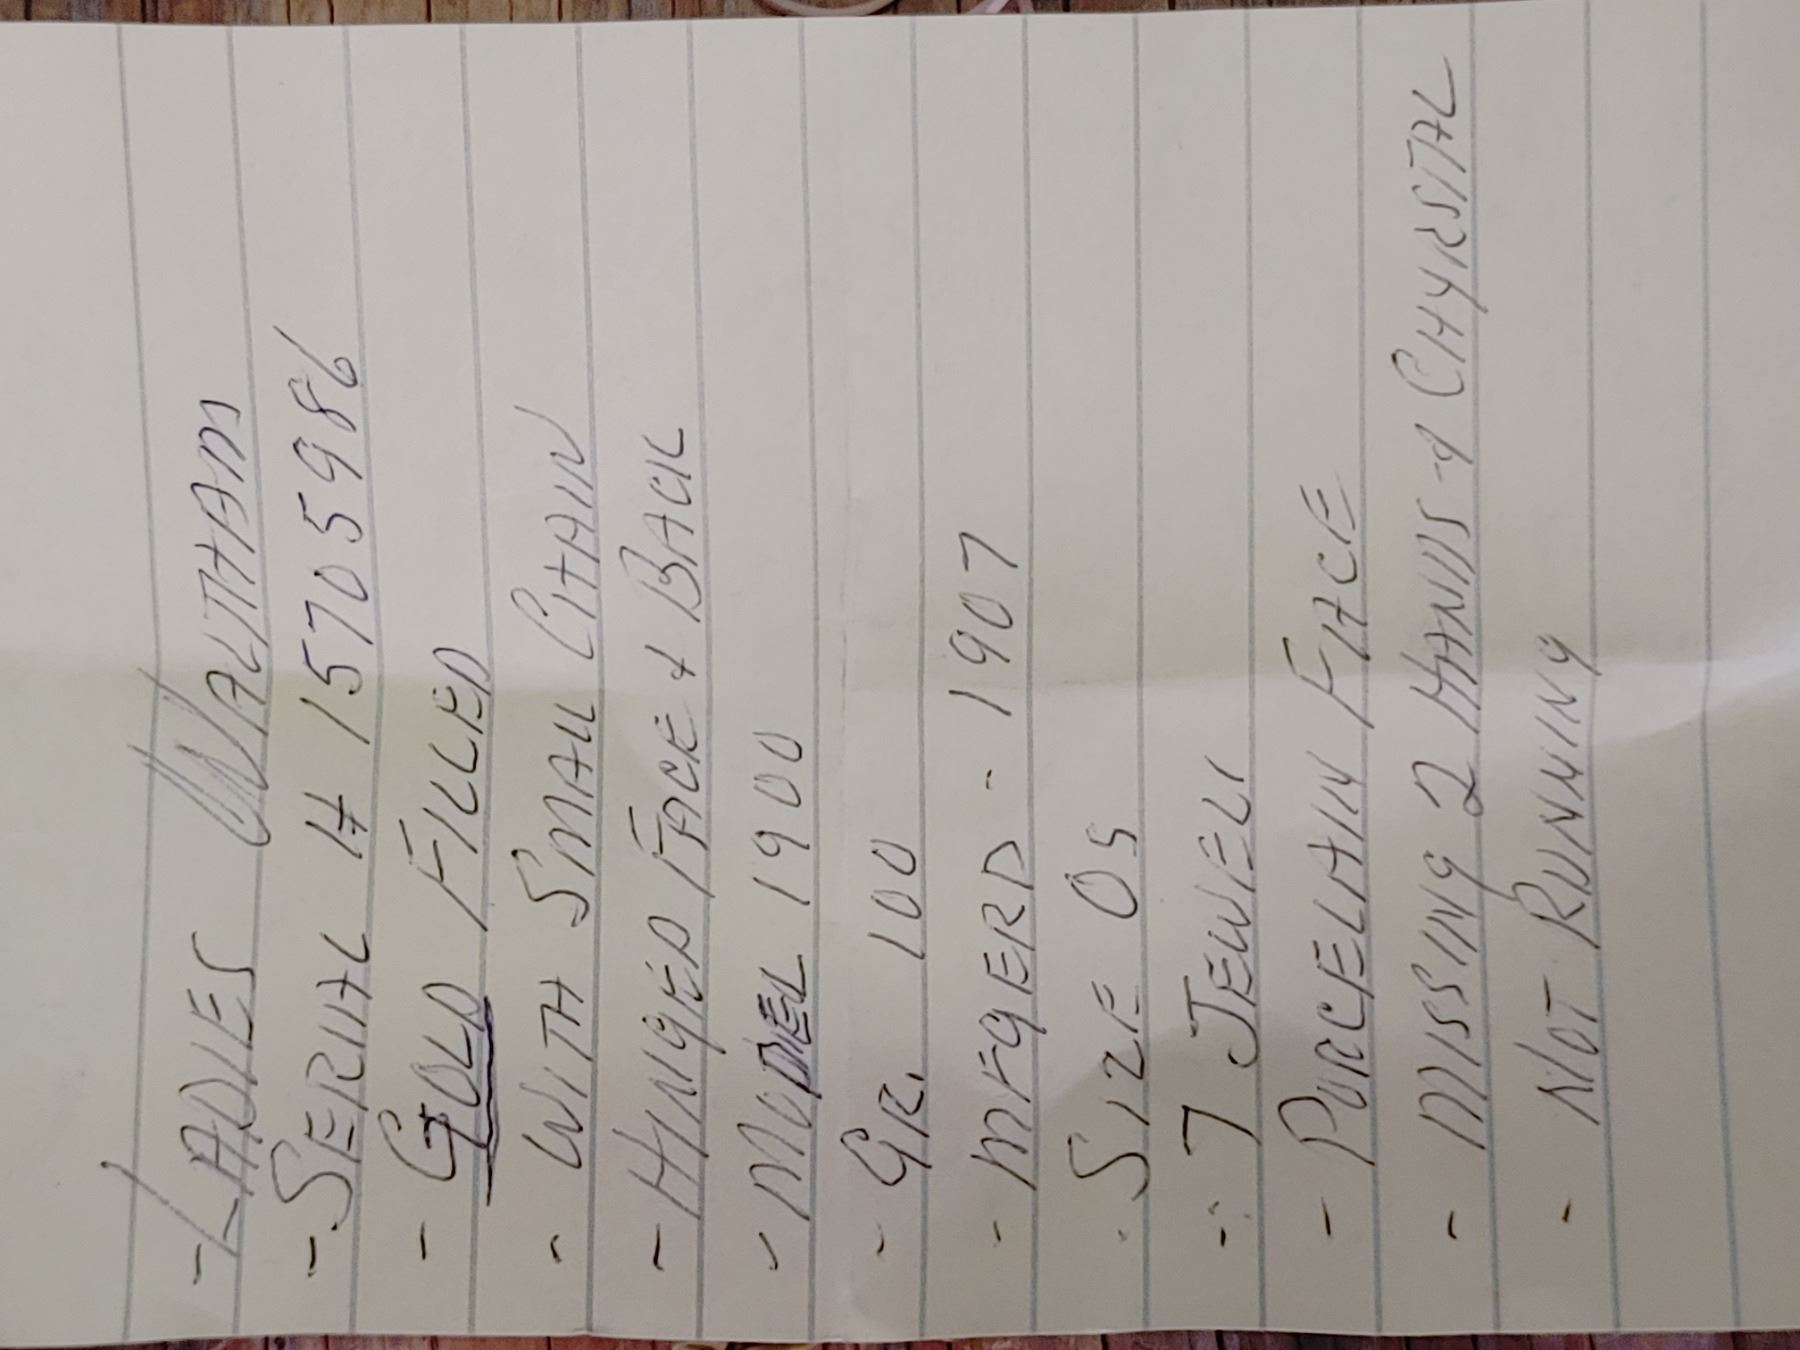 - LADIES WALTHAM
- SERIAL # 15705986
- GOLD FILLED
- WITH SMALL CHAIN
- HINGED FACE + BACK
- MODEL 1900
- GR. 100
- MFGERD - 1907
- SIZE 0s
- 7 JEWELS
- PORCELAIN FACE
- MISSING 2 HANDS + CHYRSTAL
- NOT RUNNING